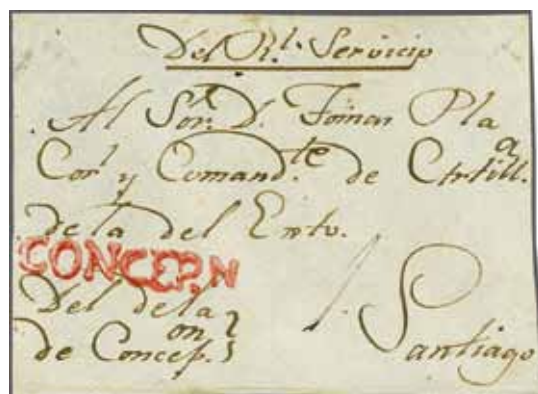 Del Rl. Servicio
Al Sor. D. Tomas Pla
Corl. y Comandte. de Artilla.
de la del Exto.
CONCEP.N
Del de la
de Concepon.
Santiago